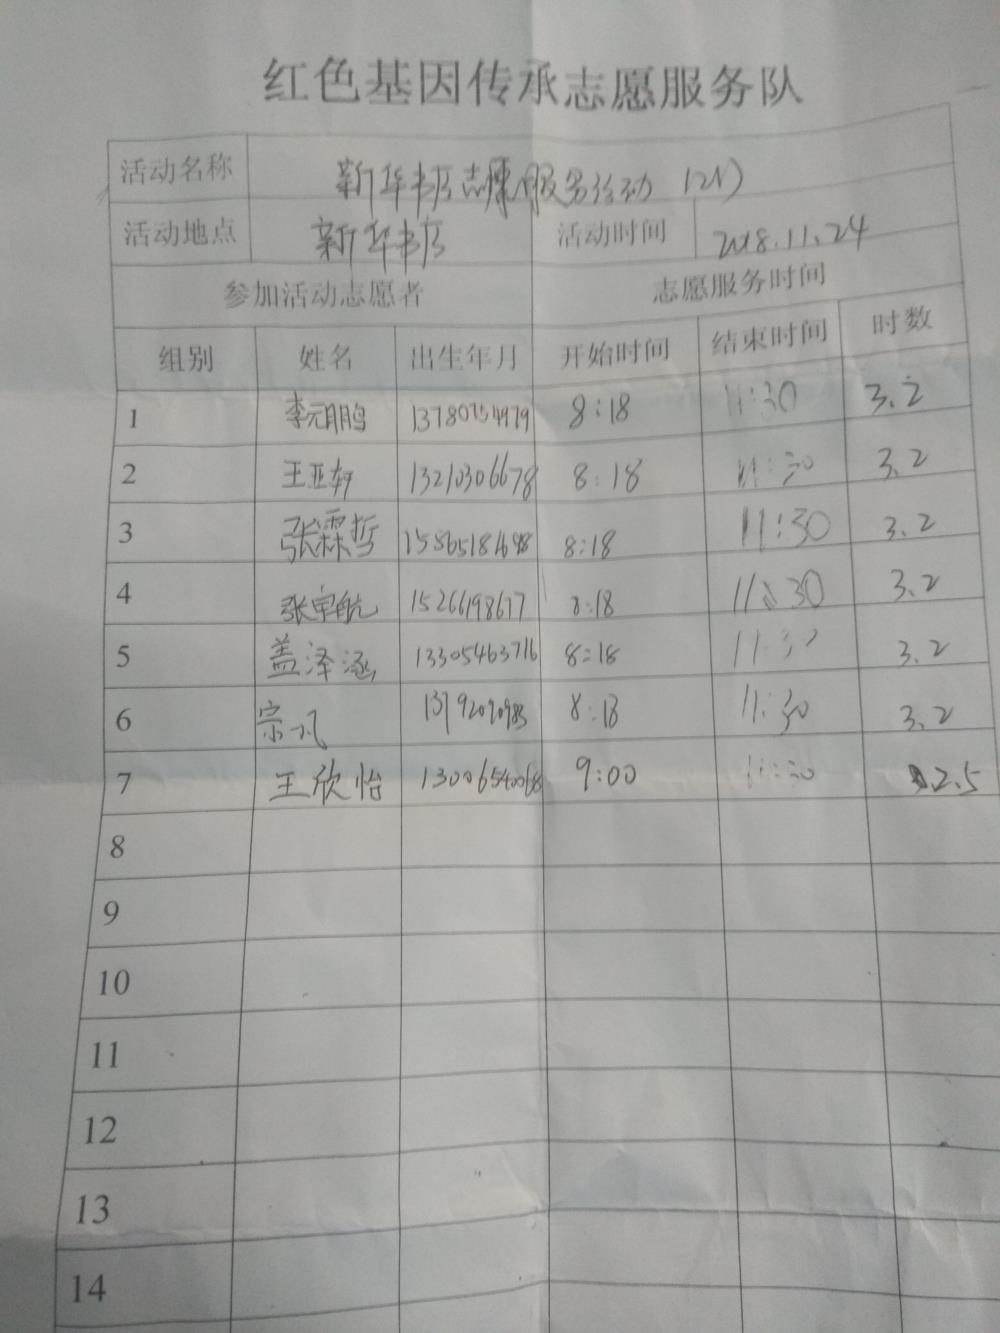 红色基因传承志愿服务队
活动名称 新华书店志愿服务活动
活动地点 新华书店 活动时间 2018.11.24
参加活动志愿者 志愿服务时间
组别 姓名 出生年月 开始时间 结束时间 时数
1 李元鹏 13780754979 8:18 11:30 3.2
2 王亚轩 13210306678 8:18 11:30 3.2
3 张霖哲 8:18 11:30 3.2
4 张宇航 8:18 11:30 3.2
5 盖泽涵 13305463716 8:18 11:30 3.2
6 宗凡 8:18 11:30 3.2
7 王欣怡 13006540068 9:00 11:30 2.5
8
9
10
11
12
13
14